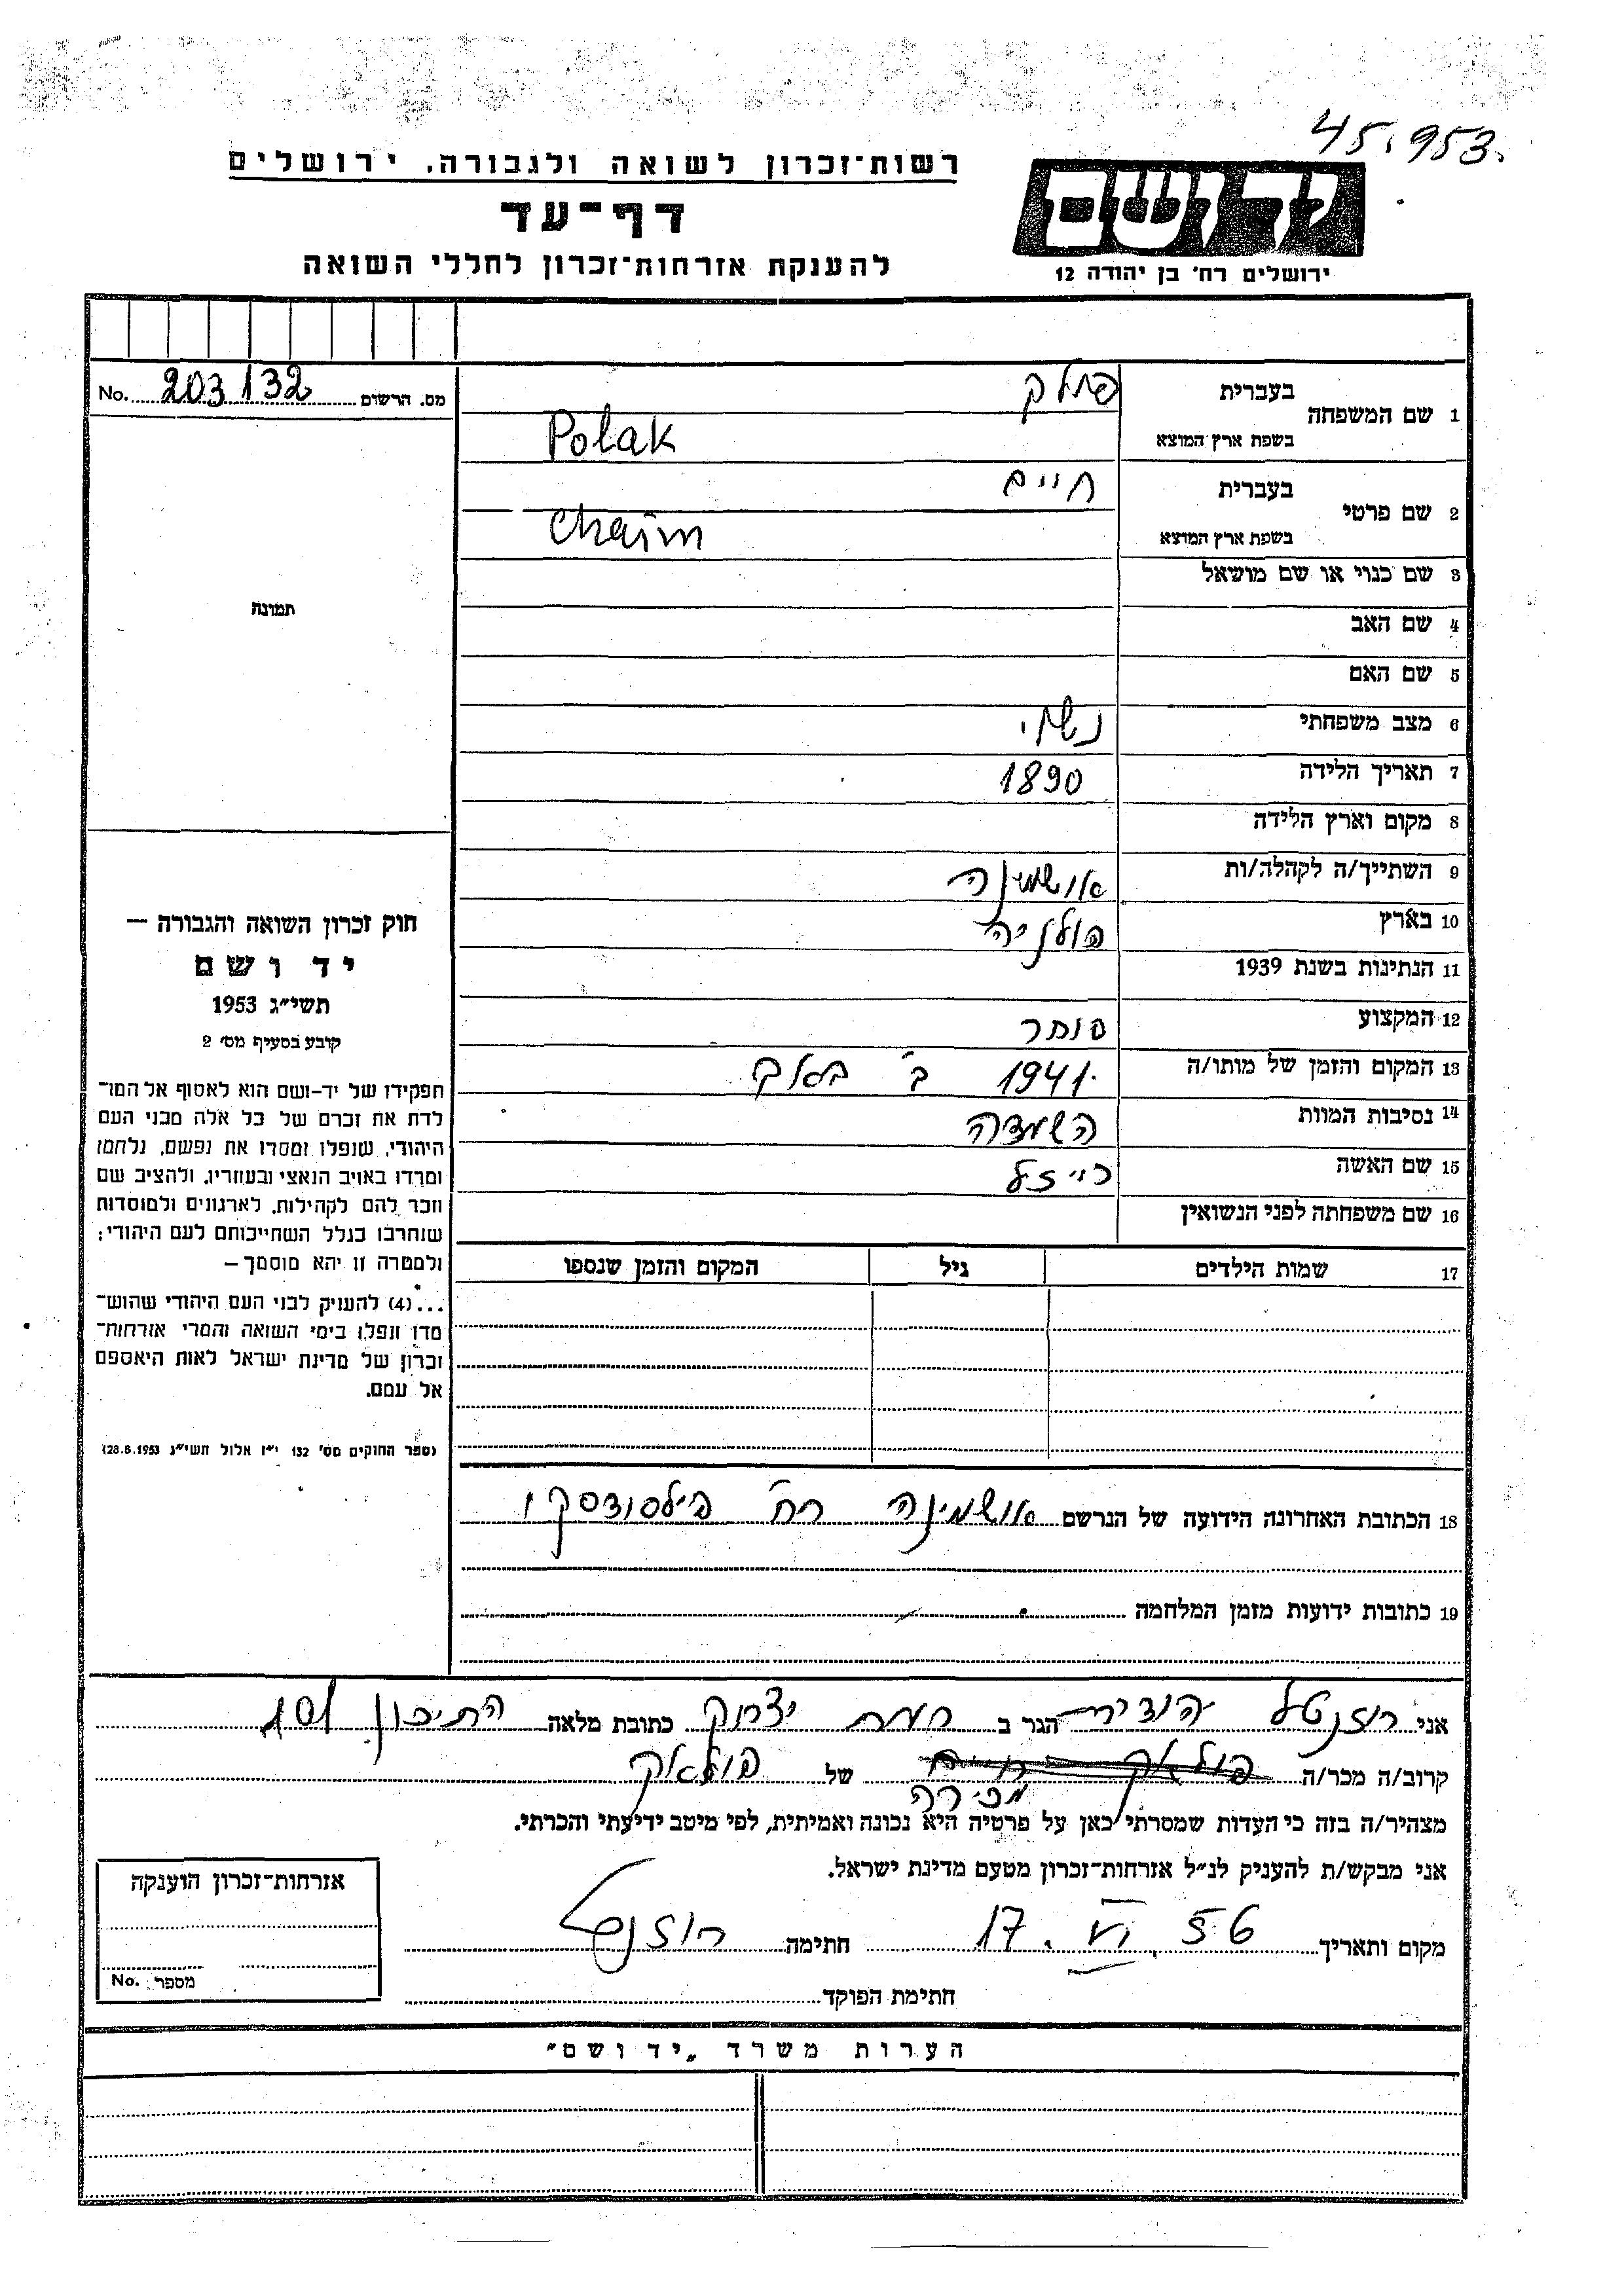 45.953.
רשות־זכרון לשואה ולגבורה. ירושלים
דף־עד
להענקת אזרחות־זכרון לחללי השואה
יד ושם
ירושלים רח׳ בן יהודה 12
מס. הרשום 203132 No.
1 שם המשפחה
בעברית פולק
בשפת ארץ המוצא Polak
2 שם פרטי
בעברית חיים
בשפת ארץ המוצא Chaim
3 שם כנוי או שם מושאל
4 שם האב
5 שם האם
6 מצב משפחתי נשוי
7 תאריך הלידה 1890
8 מקום וארץ הלידה
9 השתייך/ה לקהלה/ות אושמינה
10 בארץ פולניה
11 הנתינות בשנת 1939
12 המקצוע סוחר
13 המקום והזמן של מותו/ה 1941 ב׳
14 נסיבות המוות השמדה
15 שם האשה רייזל
16 שם משפחתה לפני הנשואין
17 שמות הילדים גיל המקום והזמן שנספו
תמונה
חוק זכרון השואה והגבורה —
יד ושם
תשי״ג 1953
קובע בסעיף מס׳ 2
תפקידו של יד-ושם הוא לאסוף אל המו־
לדת את זכרם של כל אלה מבני העם
היהודי, שנפלו ומסרו את נפשם, נלחמו
ומרדו באויב הנאצי ובעוזריו, ולהציב שם
וזכר להם לקהילות, לארגונים ולמוסדות
שנחרבו בגלל השתייכותם לעם היהודי;
ולמטרה זו יהא מוסמך —
...(4) להעניק לבני העם היהודי שהוש־
מדו ונפלו בימי השואה והמרי אזרחות־
זכרון של מדינת ישראל לאות היאספם
אל עמם.
(ספר החוקים מס׳ 132 י״ז אלול תשי״ג 28.8.1953)
18 הכתובת האחרונה הידועה של הנרשם אושמינה רח׳ פילסודסקי
19 כתובות ידועות מזמן המלחמה
אני רוזנטל יהודית הגר ב רמת יצחק כתובת מלאה התיכון 101
קרוב/ה מכר/ה פולאק חיים של פולאק
מכירה
מצהיר/ה בזה כי העדות שמסרתי כאן על פרטיה היא נכונה ואמיתית, לפי מיטב ידיעתי והכרתי.
אני מבקש/ת להעניק לנ״ל אזרחות־זכרון מטעם מדינת ישראל.
מקום ותאריך 17. VI. 56 חתימה רוזנטל
חתימת הפוקד
אזרחות־זכרון הוענקה
מספר No.
הערות משרד „יד ושם״